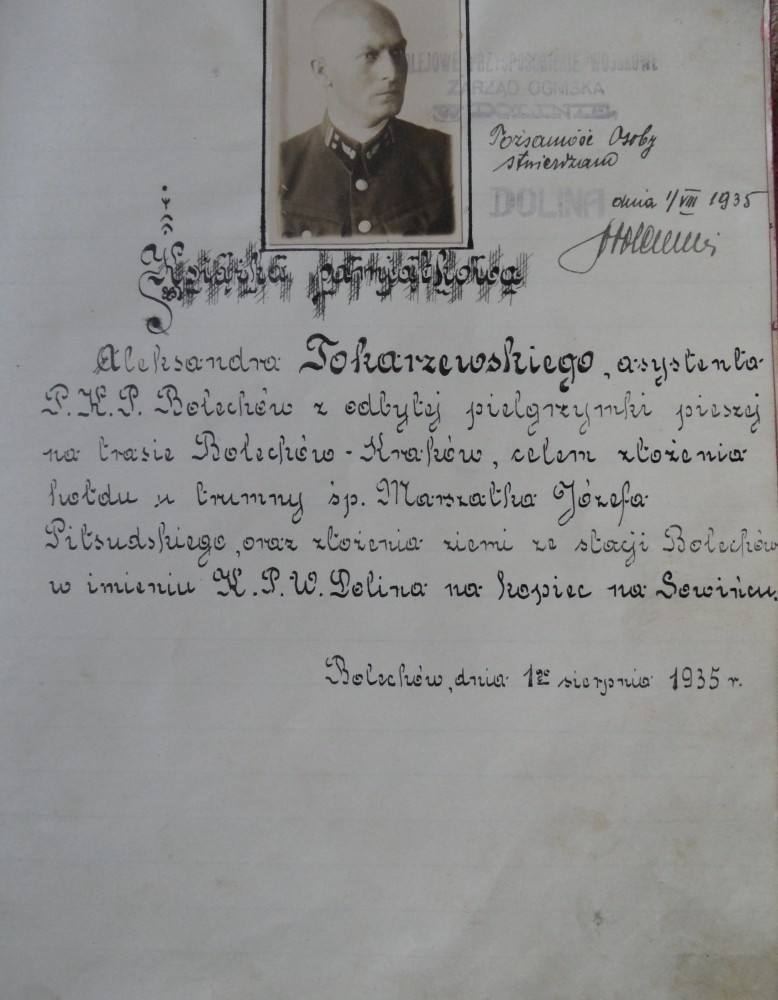 KOLEJOWE PRZYSPOSOBIENIE WOJSKOWE
ZARZĄD OGNISKA
W DOLINIE
Tożsamość Osoby
stwierdzam
DOLINA dnia 1/VIII 1935
Książka pamiątkowa
Aleksandra Tokarzewskiego, asystenta
P.K.P. Bolechów z odbytej pielgrzymki pieszej
na trasie Bolechów - Kraków, celem złożenia
hołdu u trumny śp. Marszałka Józefa
Piłsudskiego, oraz złożenia ziemi ze stacji Bolechów
w imieniu K.P.W. Dolina na kopiec na Sowińcu.
Bolechów, dnia 1go sierpnia 1935 r.